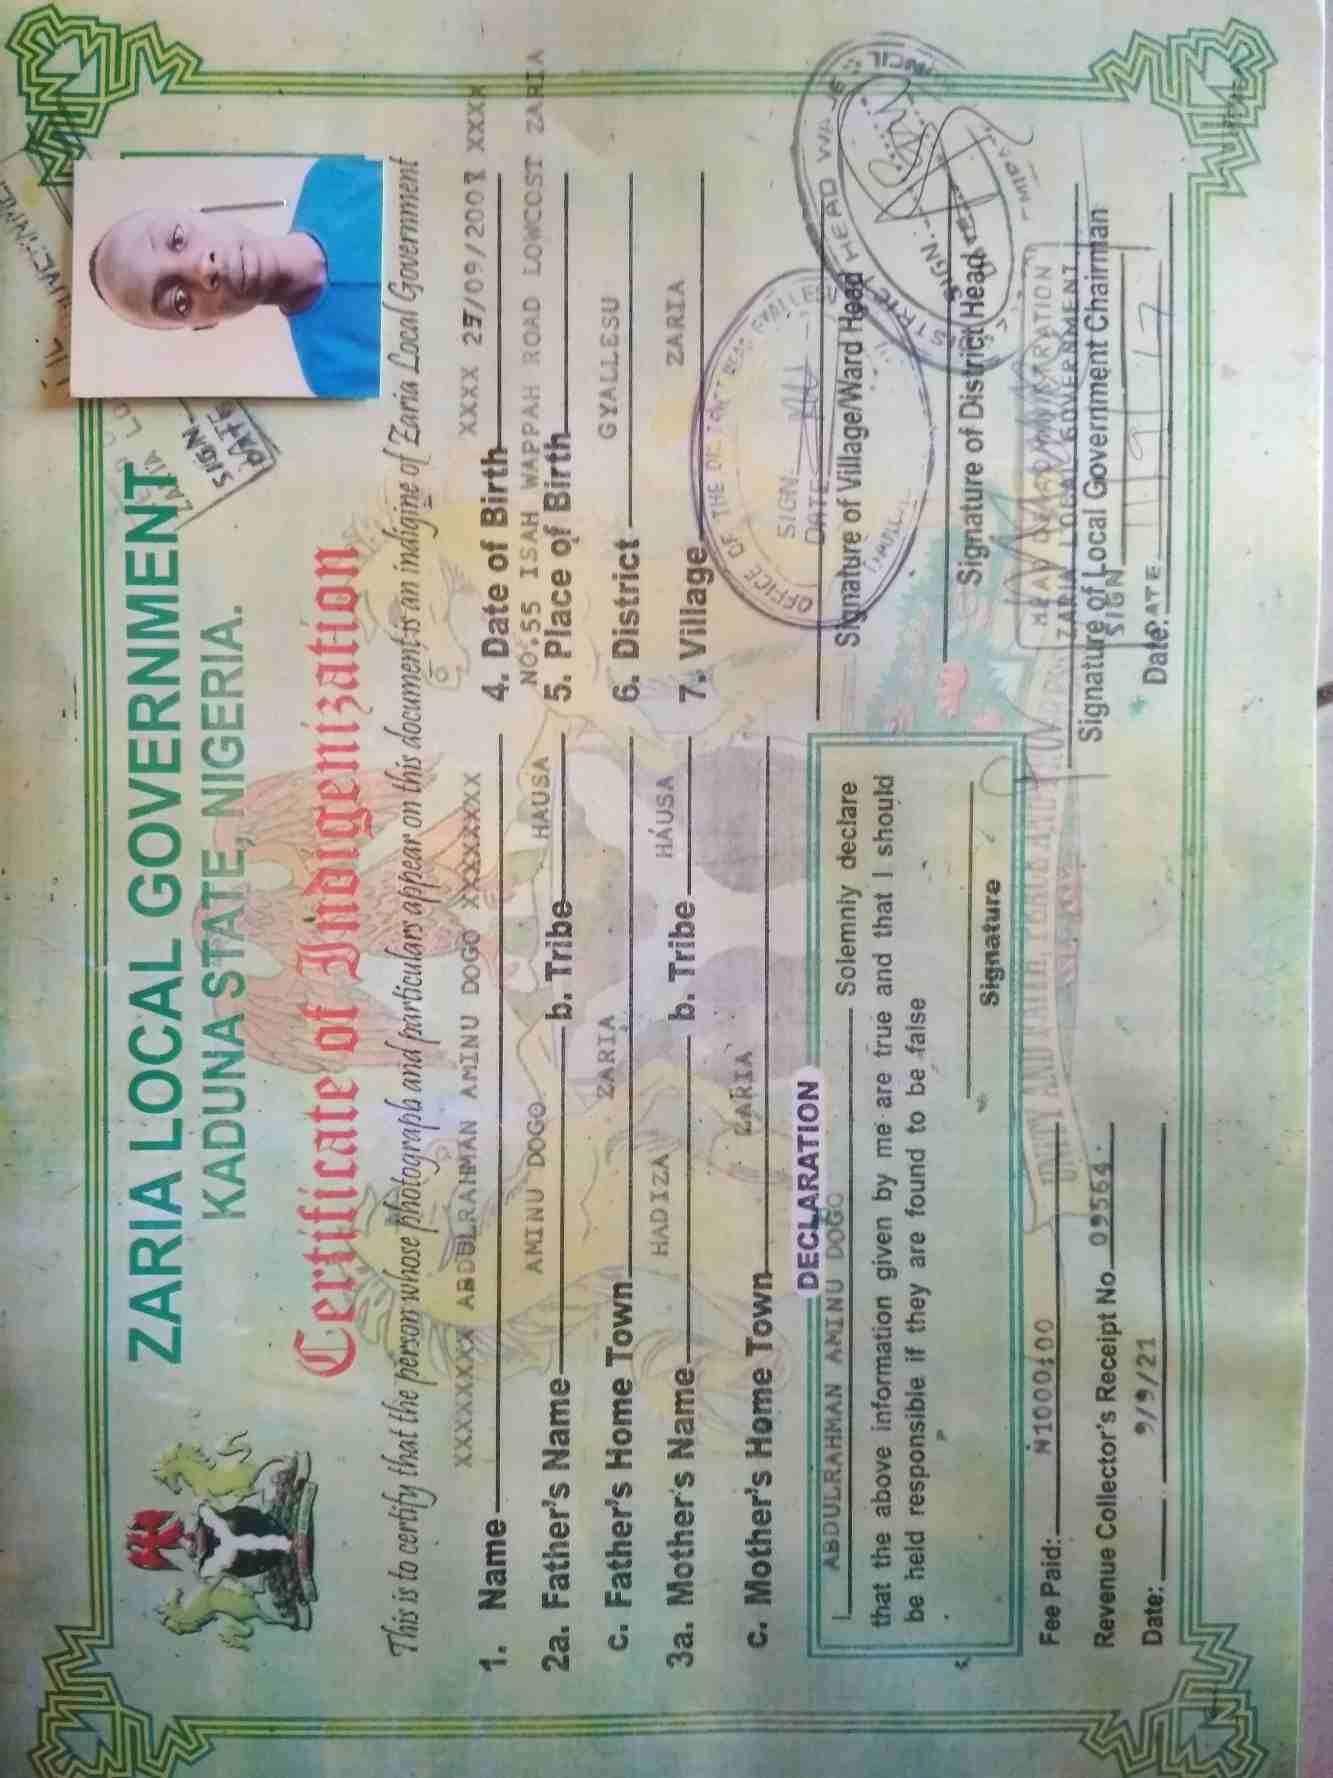 ZARIA LOCAL GOVERNMENT
KADUNA STATE, NIGERIA.
SIGN
DATE
Certificate of Indigenization
This is to certify that the person whose photograph and particulars appear on this document is an indigine of Zaria Local Government
1. Name XXXXXXXXX ABDULRAHMAN AMINU DOGO XXXXXXXXX
2a. Father's Name AMINU DOGO b. Tribe HAUSA
c. Father's Home Town ZARIA
3a. Mother's Name HADIZA b. Tribe HAUSA
c. Mother's Home Town ZARIA
4. Date of Birth XXXX /09/2001 XXXX
NO.55 ISAH WAPPAH ROAD LOWCOST ZARIA
5. Place of Birth
6. District GYALLESU
7. Village ZARIA
DECLARATION
I ABDULRAHMAN AMINU DOGO Solemnly declare
that the above information given by me are true and that I should
be held responsible if they are found to be false
Signature
OFFICE OF THE
SIGN
DATE
Signature of Village/Ward Head
SIGN
Signature of District Head
ZARIA LOCAL GOVERNMENT
Signature of Local Government Chairman
SIGN
DATE
Date:
UNITY AND FAITH, PEACE AND
Fee Paid: N1000:00
Revenue Collector's Receipt No 09564
Date: 9/9/21